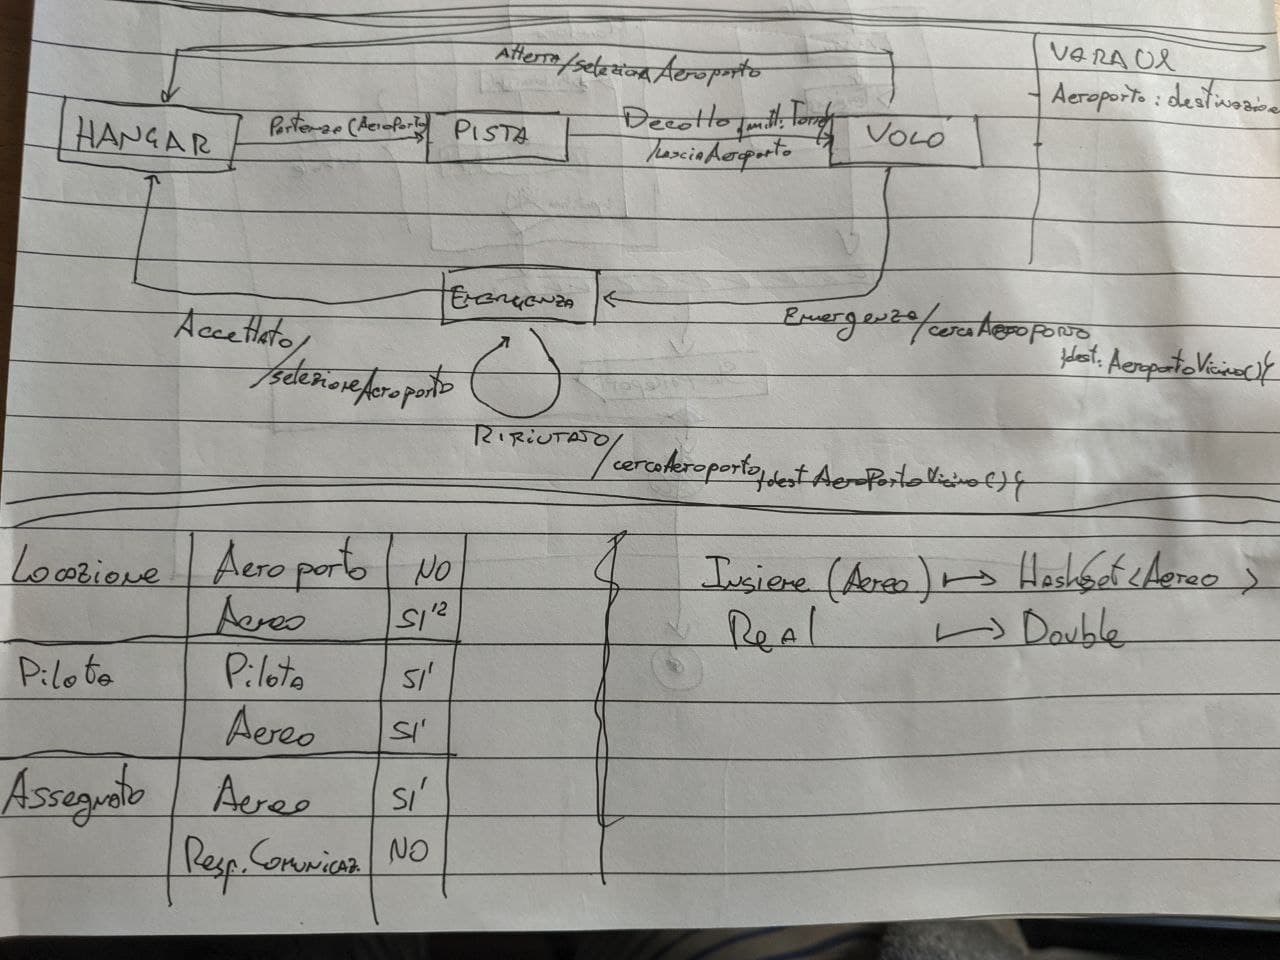 Atterra/selezionaAeroporto
VARAUX
Aeroporto: destinazione
HANGAR
Partenza (Aeroporto)
PISTA
Decollo {mitt: Torre}
/lasciaAeroporto
VOLO
Emergenza
Emergenza/cercaAeroporto
{dest: AeroportoVicino()}
Accettato/
/selezioneAeroporto
RIFIUTATO/
cercaAeroporto {dest AeroPortoVicino()}
Locazione Aeroporto NO
Aereo SI'²
Pilota Pilota SI'
Aereo SI'
Assegnato Aereo SI'
Resp. Comunicaz. NO
Insieme (Aereo) ↦ HashSet<Aereo>
Real ↦ Double